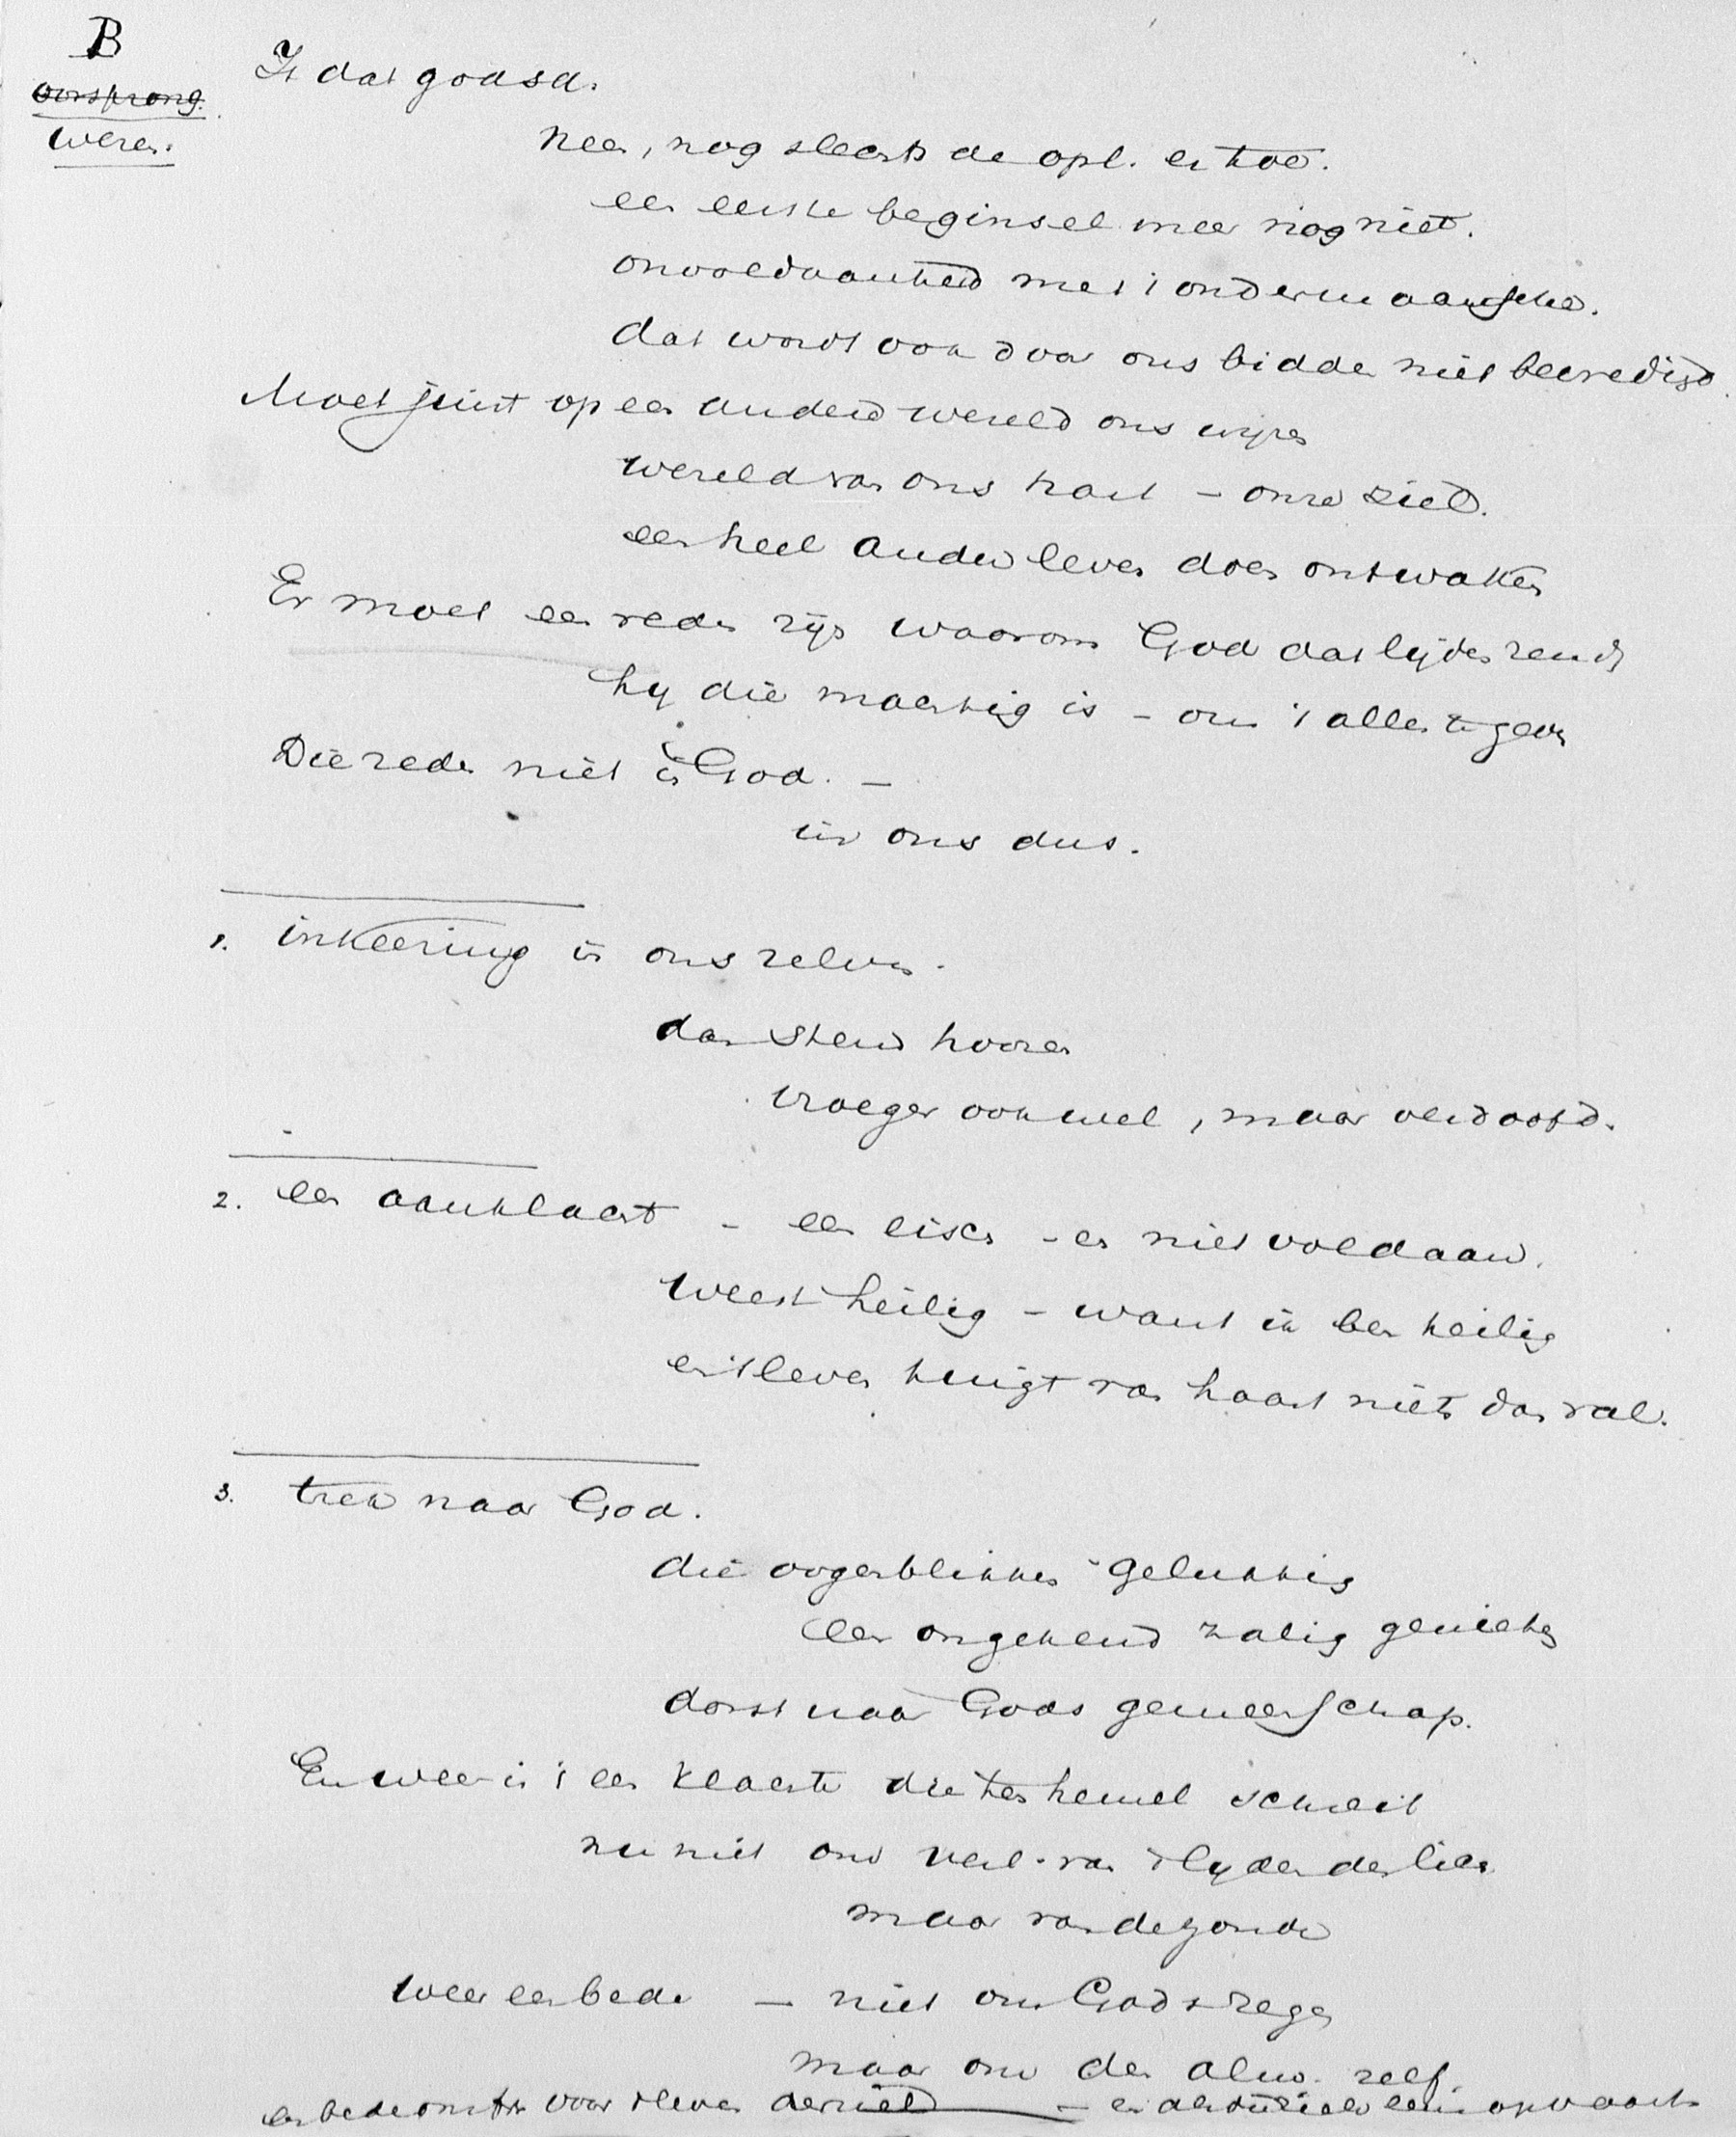 B
oorsprong.
wezen.
Is dat godsd.
Neen, nog slechts de opl. er toe.
een eerste beginsel meer nog niet.
onvoldaanheid met 't ondermaansche.
dat wordt ook door ons bidden niet bevredigd.
Moet juist op een andere wereld ons wijzen
wereld van ons hart – onze ziel.
een heel ander leven doen ontwaken
Er moet een reden zijn waarom God dat lijden zendt
hy die machtig is – om 't alles te geven
Die reden niet in God. –
in ons dus.
1. inkeering in ons zelven.
dan stem hooren
vroeger ook wel, maar verdoofd.
2. een aanklacht – een eisch – en niet voldaan.
Weest heilig – want ik ben heilig
en 't leven tuigt van haast niets dan val.
3. trek naar God.
die oogenblikken gelukkig
een ongekend zalig genieten
dorst naar Gods gemeenschap.
En weer is 't een klacht die ten hemel schreit
nu niet om verl. van 't lyden
maar van de zonde
weer een bede – niet om Gods zegen
maar om den Alm. zelf.
en bede om voor 't leven der ziel –